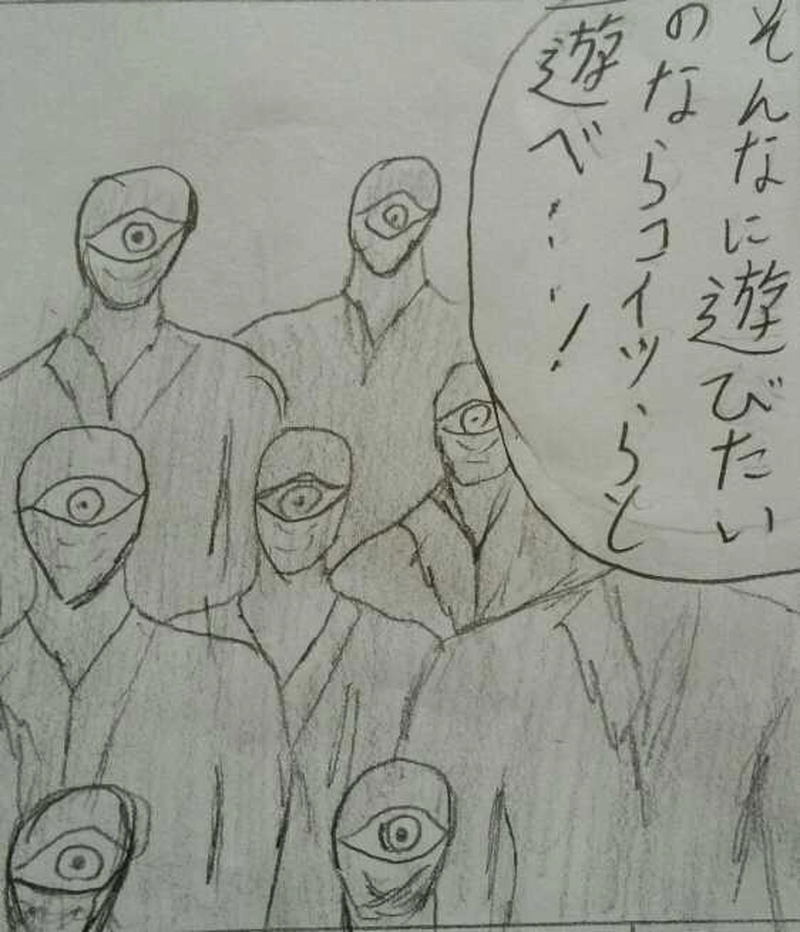 そんなに遊びたい
のならコイツらと
遊べ…!